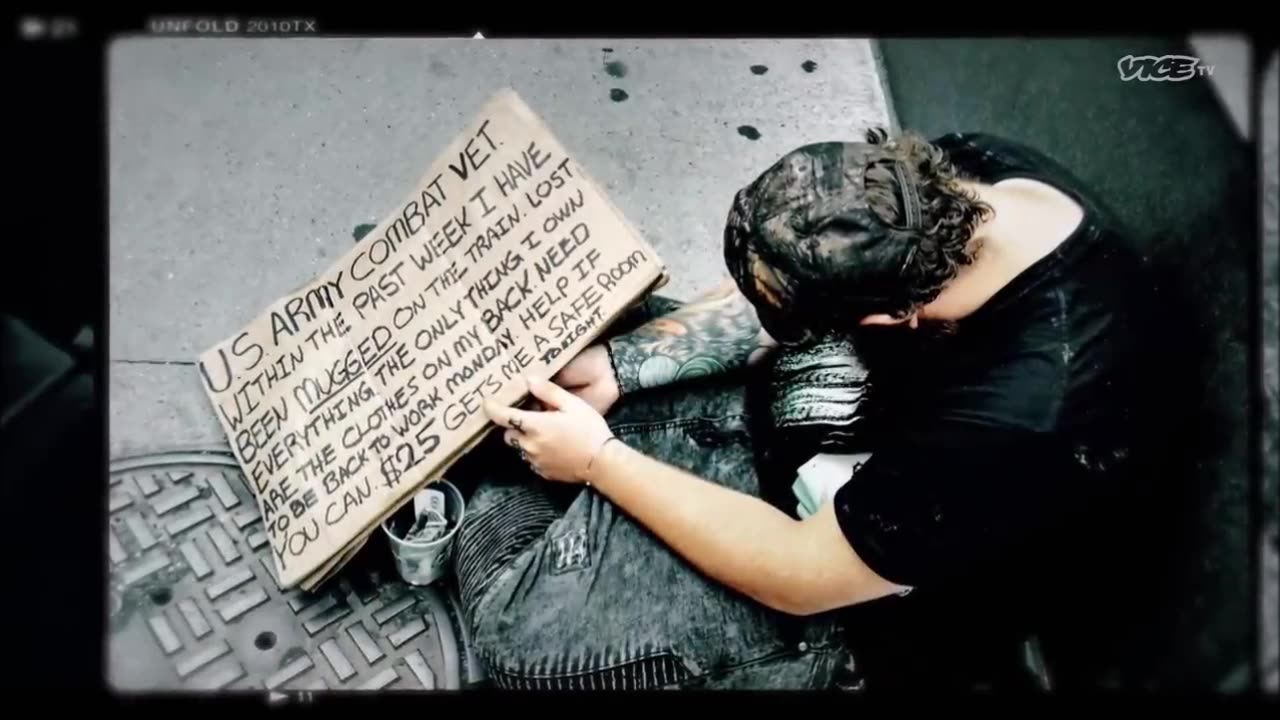 UNFOLD 2010TX
VICE TV
U.S. ARMY COMBAT VET
WITHIN THE PAST WEEK I HAVE
BEEN MUGGED ON THE TRAIN. LOST
EVERYTHING THE ONLY THING I OWN
ARE THE CLOTHES ON MY BACK. NEED
TO BE BACK TO WORK MONDAY. HELP IF
YOU CAN. $25 GETS ME A SAFE ROOM
TONIGHT.
11